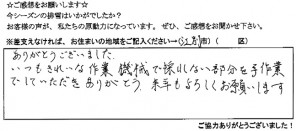 ☆ご感想をお願いします☆
今シーズンの排雪はいかがでしたか？
お客様の声が、私たちの原動力になっています。ぜひ、ご感想をお聞かせ下さい。
※差支えなければ、お住まいの地域をご記入ください→(江別市)(　　区)
ありがとうございました。
いつもきれいな作業 機械で採れない部分を手作業
でしていただきありがとう。来年もよろしくお願いします
ご協力ありがとうございました！